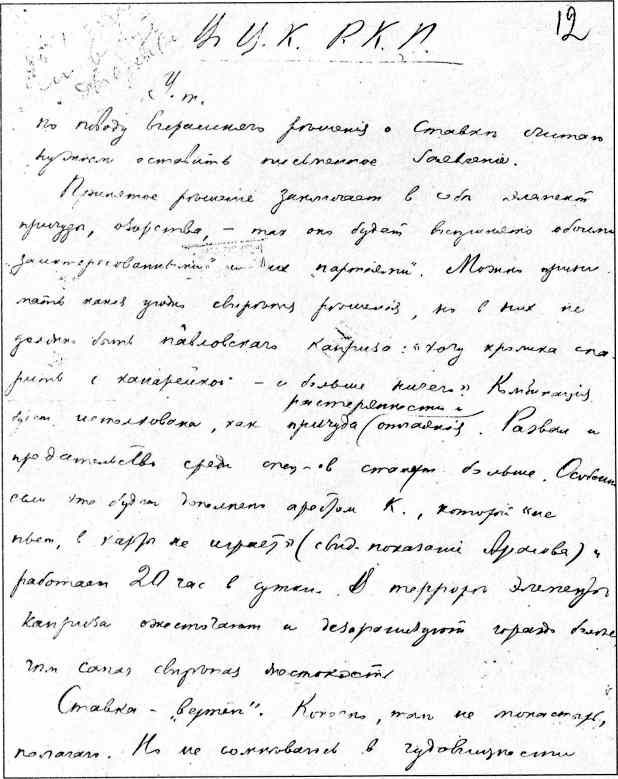 12
В Ц.К. Р.К.П.
Ув. т.
По поводу вчерашняго решенiя о Ставке считаю
нужным оставить письменное заявленiе.
Принятое решенiе заключает в себе элемент
причуды, озорства, – так оно будет воспринято обоими
"заинтересованными" "партиями". Можно прини
мать какiя угодно свирепыя решенiя, но в них не
должно быть павловскаго каприза: "хочу кролика спа-
рить с канарейкой – и больше ничего". Комбинацiя
растерянности и
будет истолкована, как причуда (отчаянiя). Развал и
предательство среди спец-ов станет больше. Особенно
если это будет дополнено арестом К., который "не
пьет, в карты не играет" (свид. показанiя) и
работает 20 час в сутки. В терроре элементы
каприза ожесточают и дезорганизуют гораздо более
чем самая свирепая жестокость
Ставка – "вертеп". Конечно, там не монастырь,
полагаю. Но не сомневаюсь в чудовищности